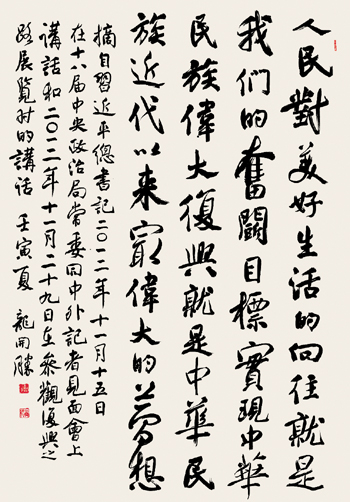 人民對美好生活的向往就是
我们的奮鬪目標實現中華
民族偉大復興就是中華民
族近代以来最偉大的夢想
摘自習近平總書記二〇一二年十一月十五日
在十八届中央政治局常委同中外記者見面會上
講話和二〇一二年十一月二十九日在參觀復興之
路展覽时的講話 壬寅夏 龍開勝